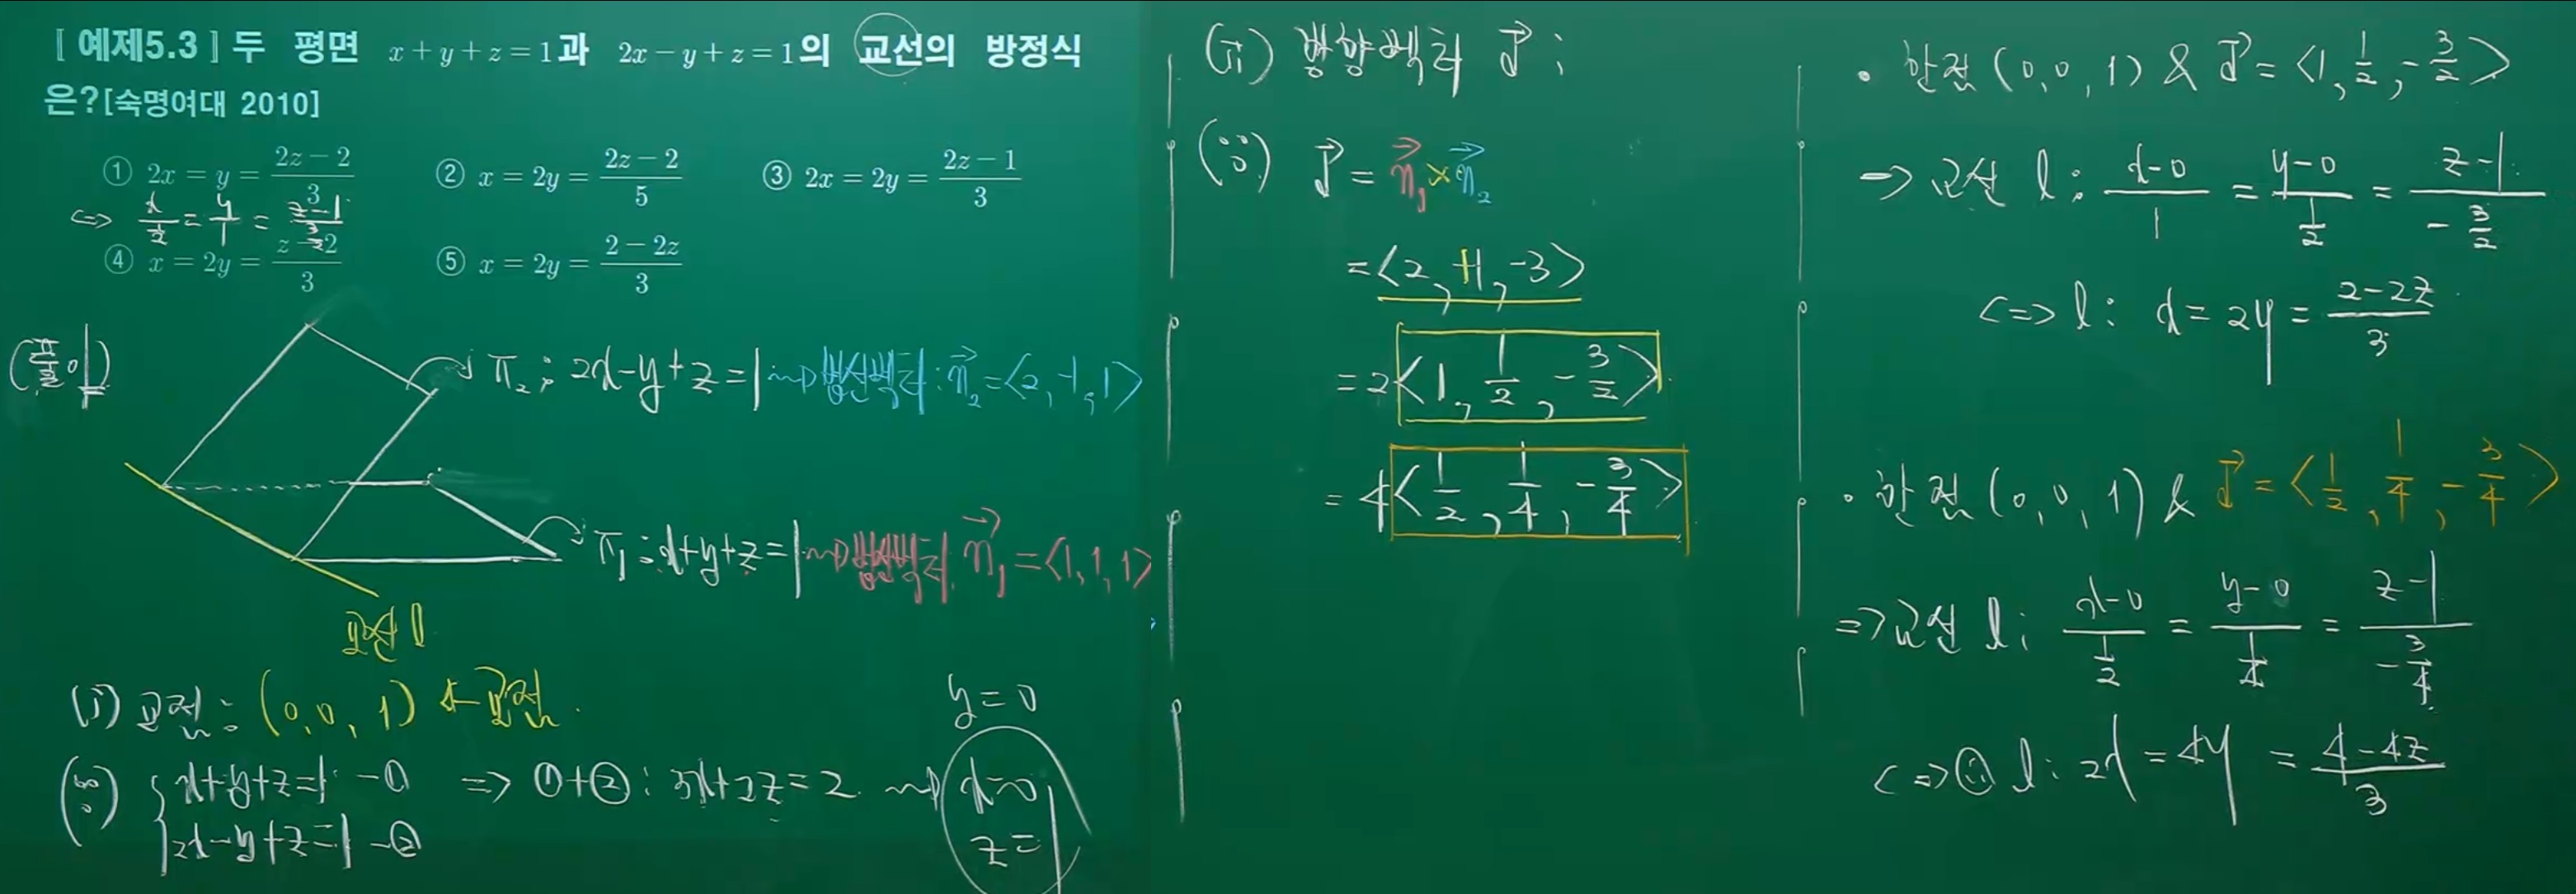 [예제5.3] 두 평면 x+y+z=1과 2x-y+z=1의 교선의 방정식
은?[숙명여대 2010]
① 2x = y = (2z-2)/3 ② x = 2y = (2z-2)/5 ③ 2x = 2y = (2z-1)/3
<=> x/(1/2) = y/1 = (z-1)/(3/2)
④ x = 2y = (z-2)/3 ⑤ x = 2y = (2-2z)/3
(풀이)
π₂ : 2x-y+z=1 ⇝ 법선벡터 : n₂→ = <2, -1, 1>
π₁ : x+y+z=1 ⇝ 법선벡터 : n₁→ = <1, 1, 1>
교선 l
(i) 교점 : (0, 0, 1) ← 교점
y=0
(∵) { x+y+z=1 -① => ①+② : 3x+2z=2 ⇝ x=0
2x-y+z=1 -② z=1
(ii) 방향벡터 d→ ;
(∵) d→ = n₁→ × n₂→
= <2, +1, -3>
= 2<1, 1/2, -3/2>
= 4<1/2, 1/4, -3/4>
• 한점 (0, 0, 1) & d→ = <1, 1/2, -3/2>
=> 교선 l : (x-0)/1 = (y-0)/(1/2) = (z-1)/(-3/2)
<=> l : x = 2y = (2-2z)/3
• 한점 (0, 0, 1) & d→ = <1/2, 1/4, -3/4>
=> 교선 l : (x-0)/(1/2) = (y-0)/(1/4) = (z-1)/(-3/4)
<=> l : 2x = 4y = (4-4z)/3